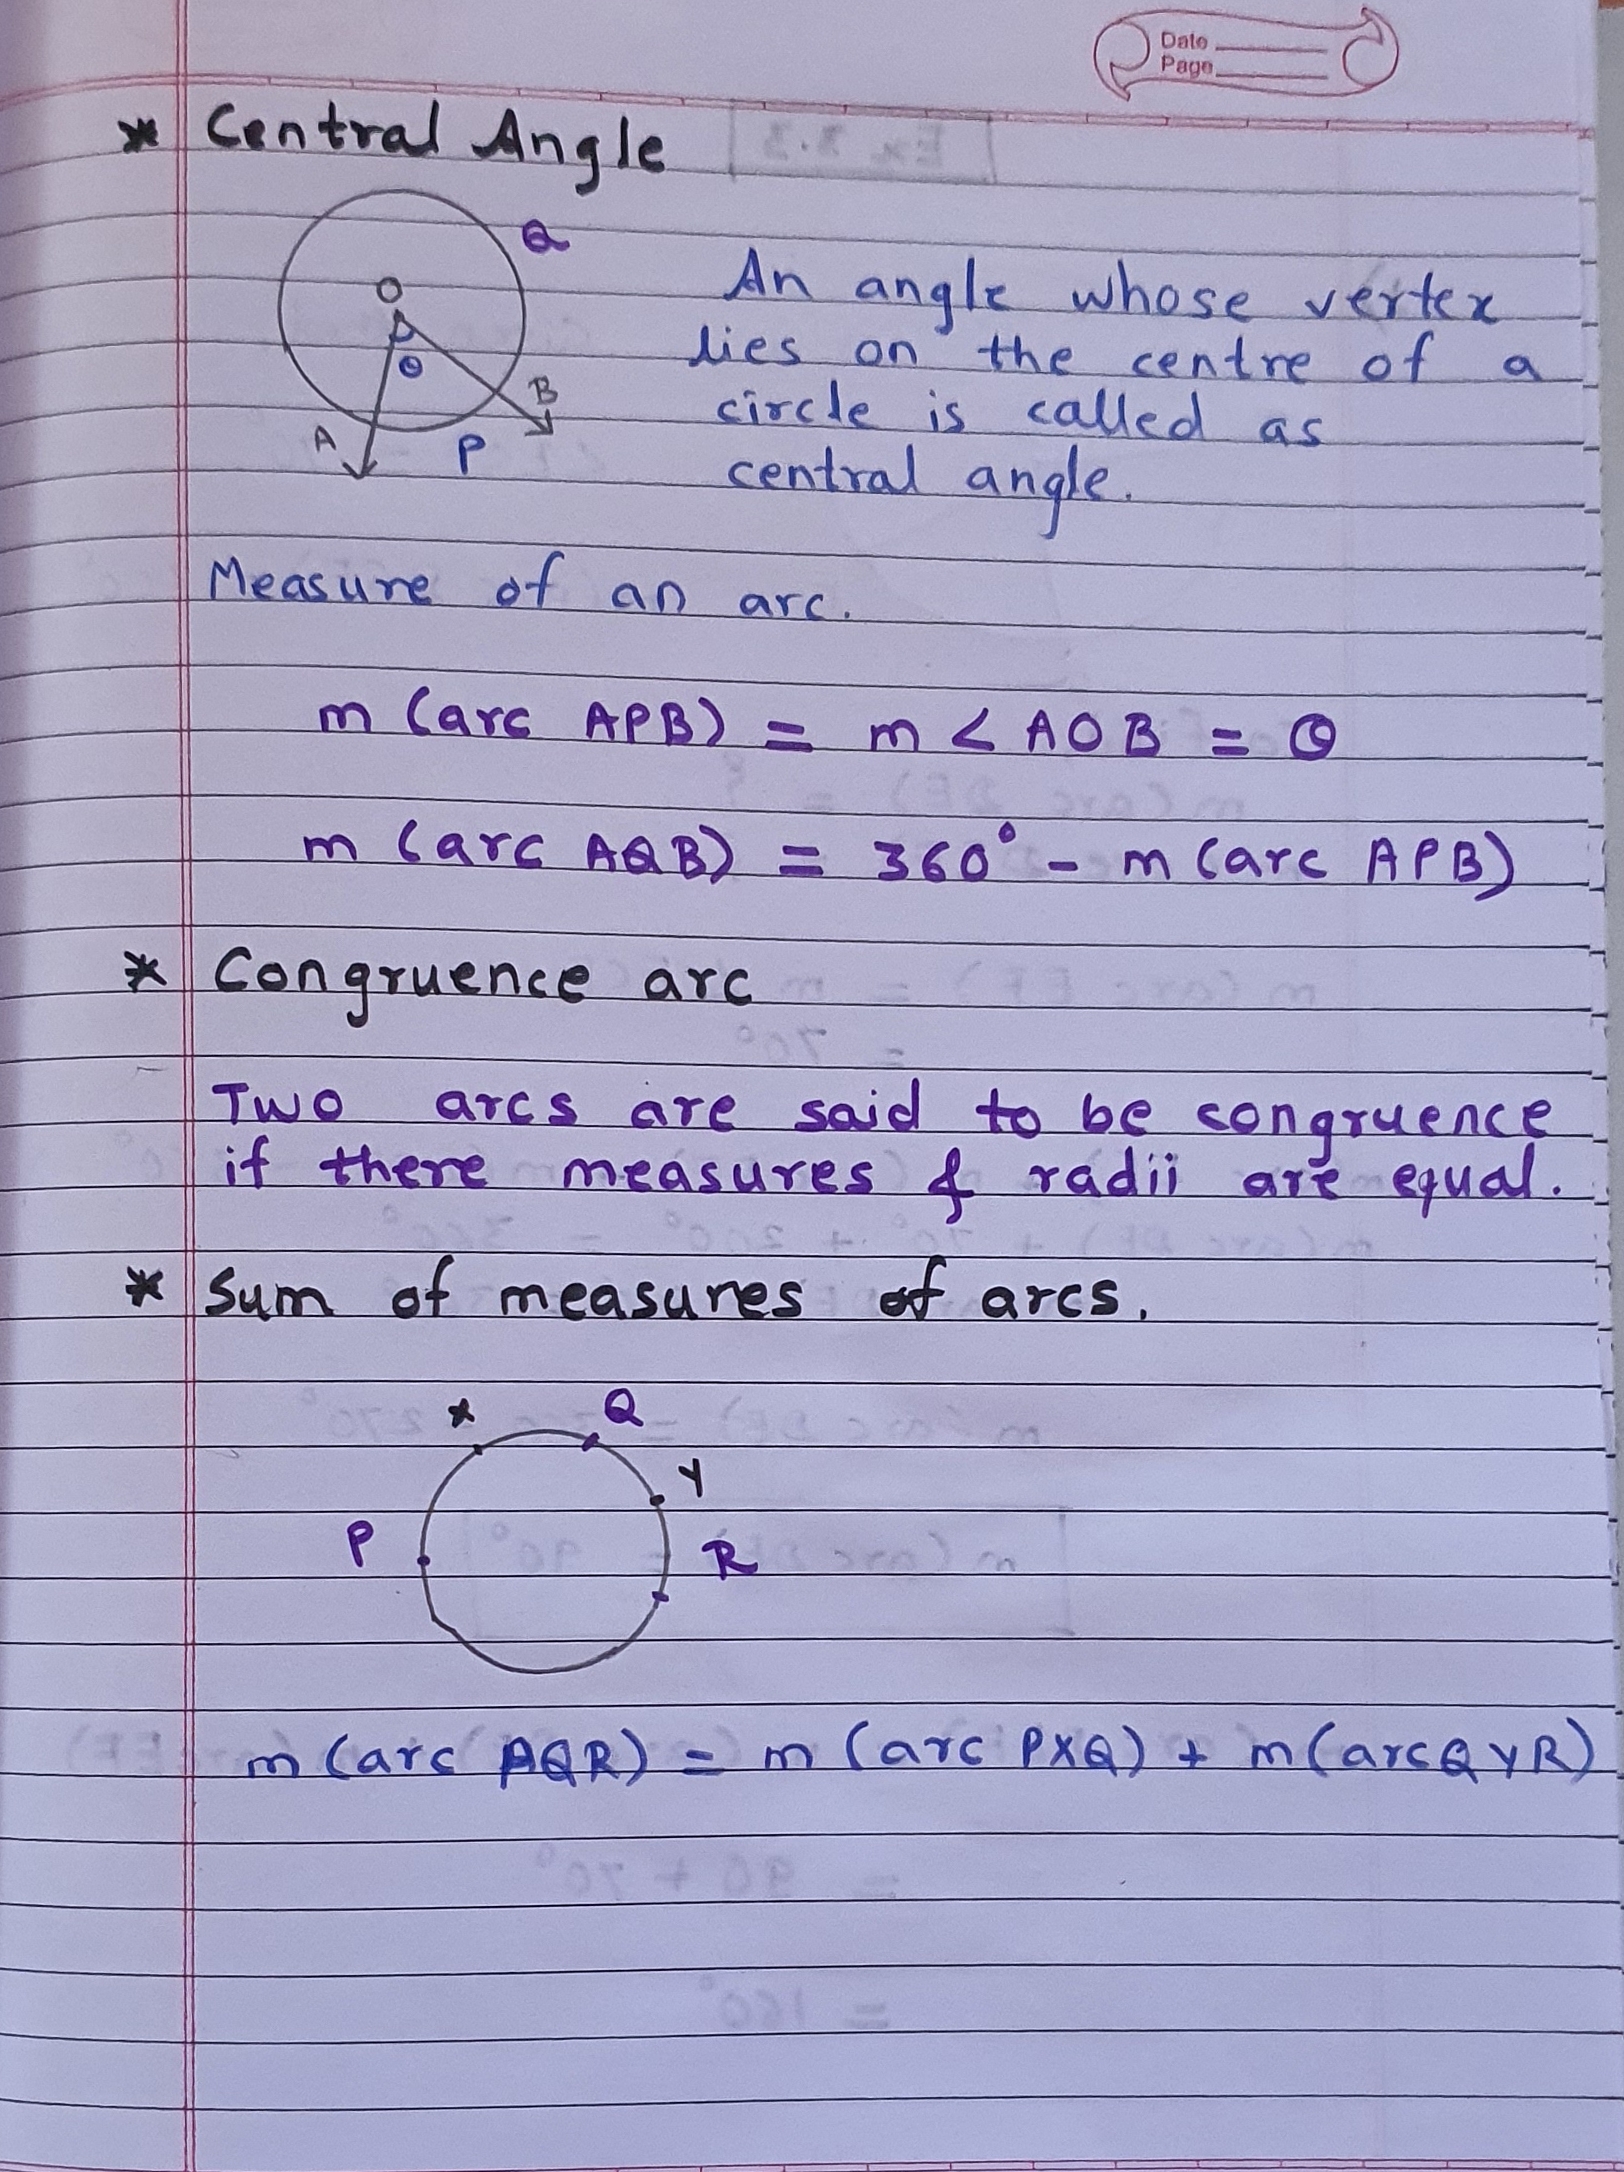 Date
Page
* Central Angle
Q
O
θ
B
A
P
An angle whose vertex
lies on the centre of a
circle is called as
central angle.
Measure of an arc.
m (arc APB) = m < AOB = θ
m (arc AQB) = 360° - m (arc APB)
* Congruence arc
Two arcs are said to be congruence
if there measures & radii are equal.
* Sum of measures of arcs.
x Q
Y
P
R
m (arc PQR) = m (arc PXQ) + m (arc QYR)